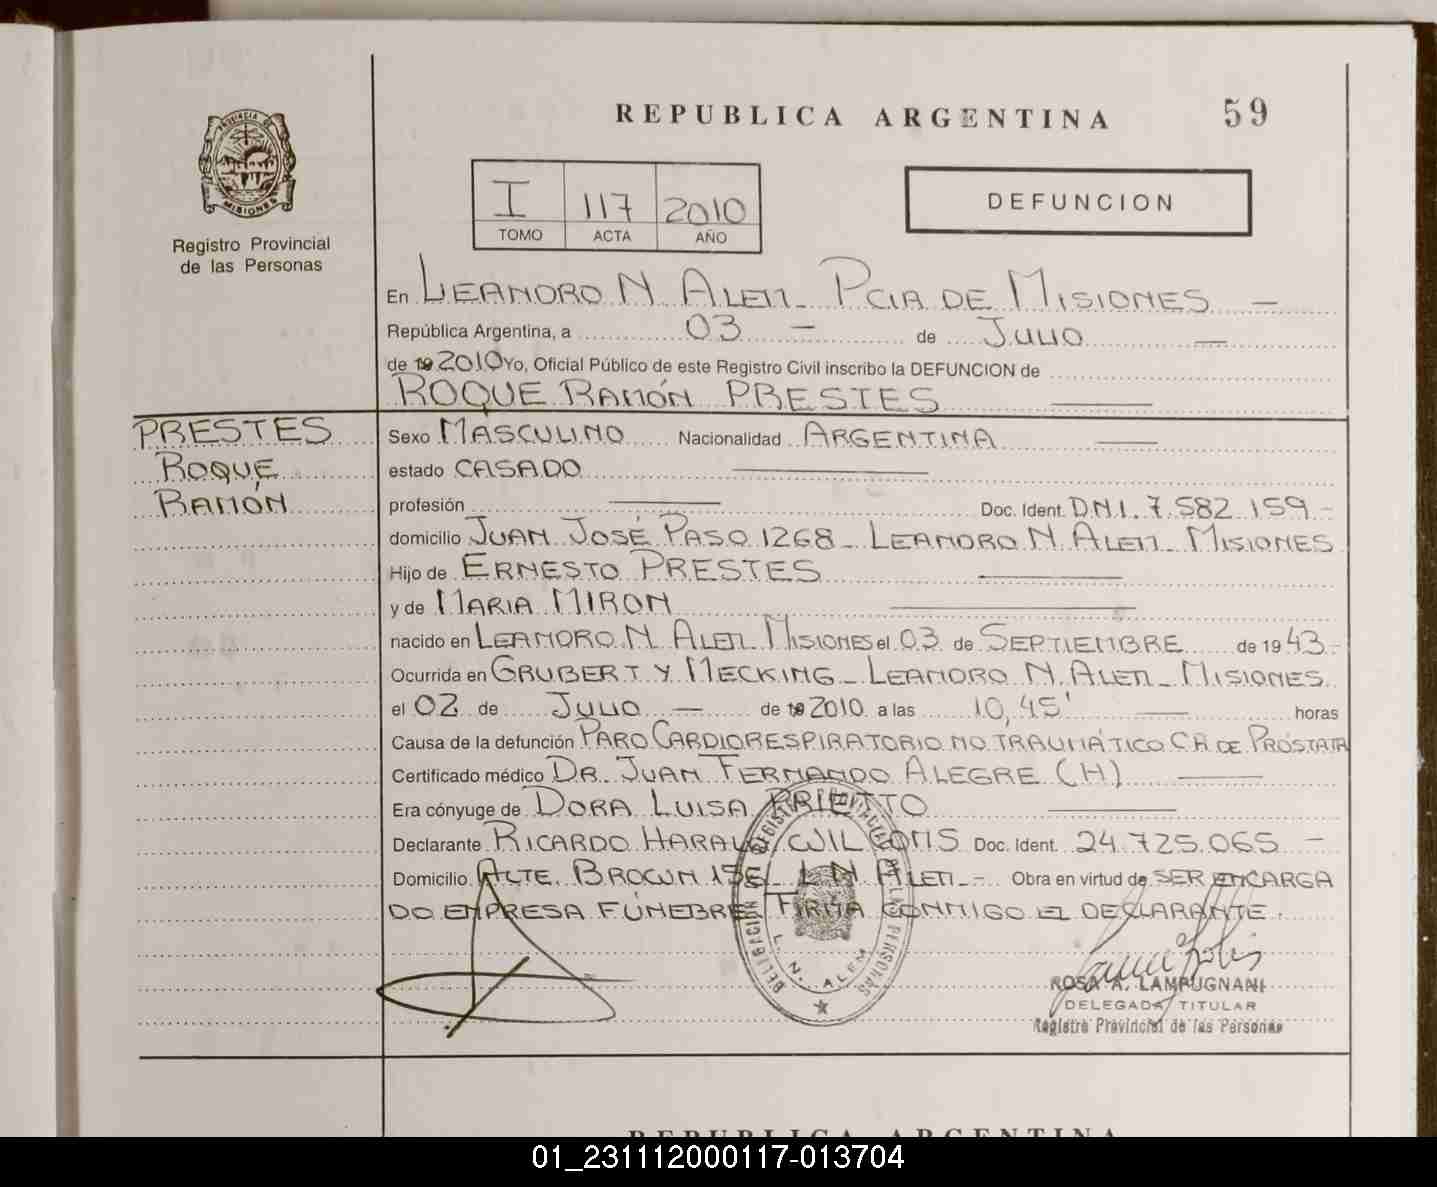 REPUBLICA ARGENTINA 59
PROVINCIA DE
MISIONES
Registro Provincial
de las Personas
I 117 2010
TOMO ACTA AÑO
DEFUNCION
En LEANDRO N ALEM - PCIA DE MISIONES —
República Argentina, a 03 — de JULIO —
de 19 2010 Yo, Oficial Público de este Registro Civil inscribo la DEFUNCION de
ROQUE RAMÓN PRESTES —
PRESTES
ROQUE
RAMÓN
Sexo MASCULINO Nacionalidad ARGENTINA —
estado CASADO —
profesión — Doc. Ident. D.N.I. 7.582.159 -
domicilio JUAN JOSÉ PASO 1268 - LEANDRO N. ALEM - MISIONES
Hijo de ERNESTO PRESTES —
y de MARIA MIRON —
nacido en LEANDRO N. ALEM MISIONES el 03 de SEPTIEMBRE de 19 43 -
Ocurrida en GRUBERT Y MECKING - LEANDRO N. ALEM - MISIONES
el 02 de JULIO — de 19 2010 a las 10,45' — horas
Causa de la defunción PARO CARDIORESPIRATORIO NO TRAUMÁTICO CA DE PRÓSTATA
Certificado médico DR. JUAN FERNANDO ALEGRE (H) —
Era cónyuge de DORA LUISA PRIETTO —
Declarante RICARDO Doc. Ident. 24.725.065 -
Domicilio ALTE. BROWN L N ALEM - Obra en virtud de SER ENCARGA
DO EMPRESA FÚNEBRE FIRMA CONMIGO EL DECLARANTE.
DELEGACIÓN REGISTRO PROVINCIAL DE LAS PERSONAS
L. N. ALEM
ROSA A. LAMPUGNANI
DELEGADA TITULAR
Registro Provincial de las Personas
REPUBLICA ARGENTINA
01_231112000117-013704